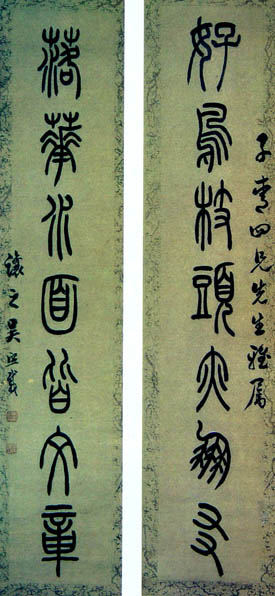 子青四兄先生雅屬
好鳥枝頭亦朋友
落華水面皆文章
讓之吳熙載